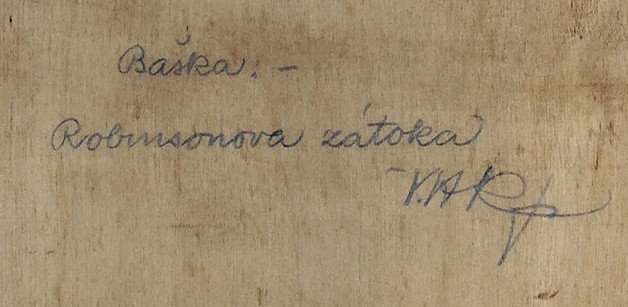 Baška: -
Robinsonova zátoka